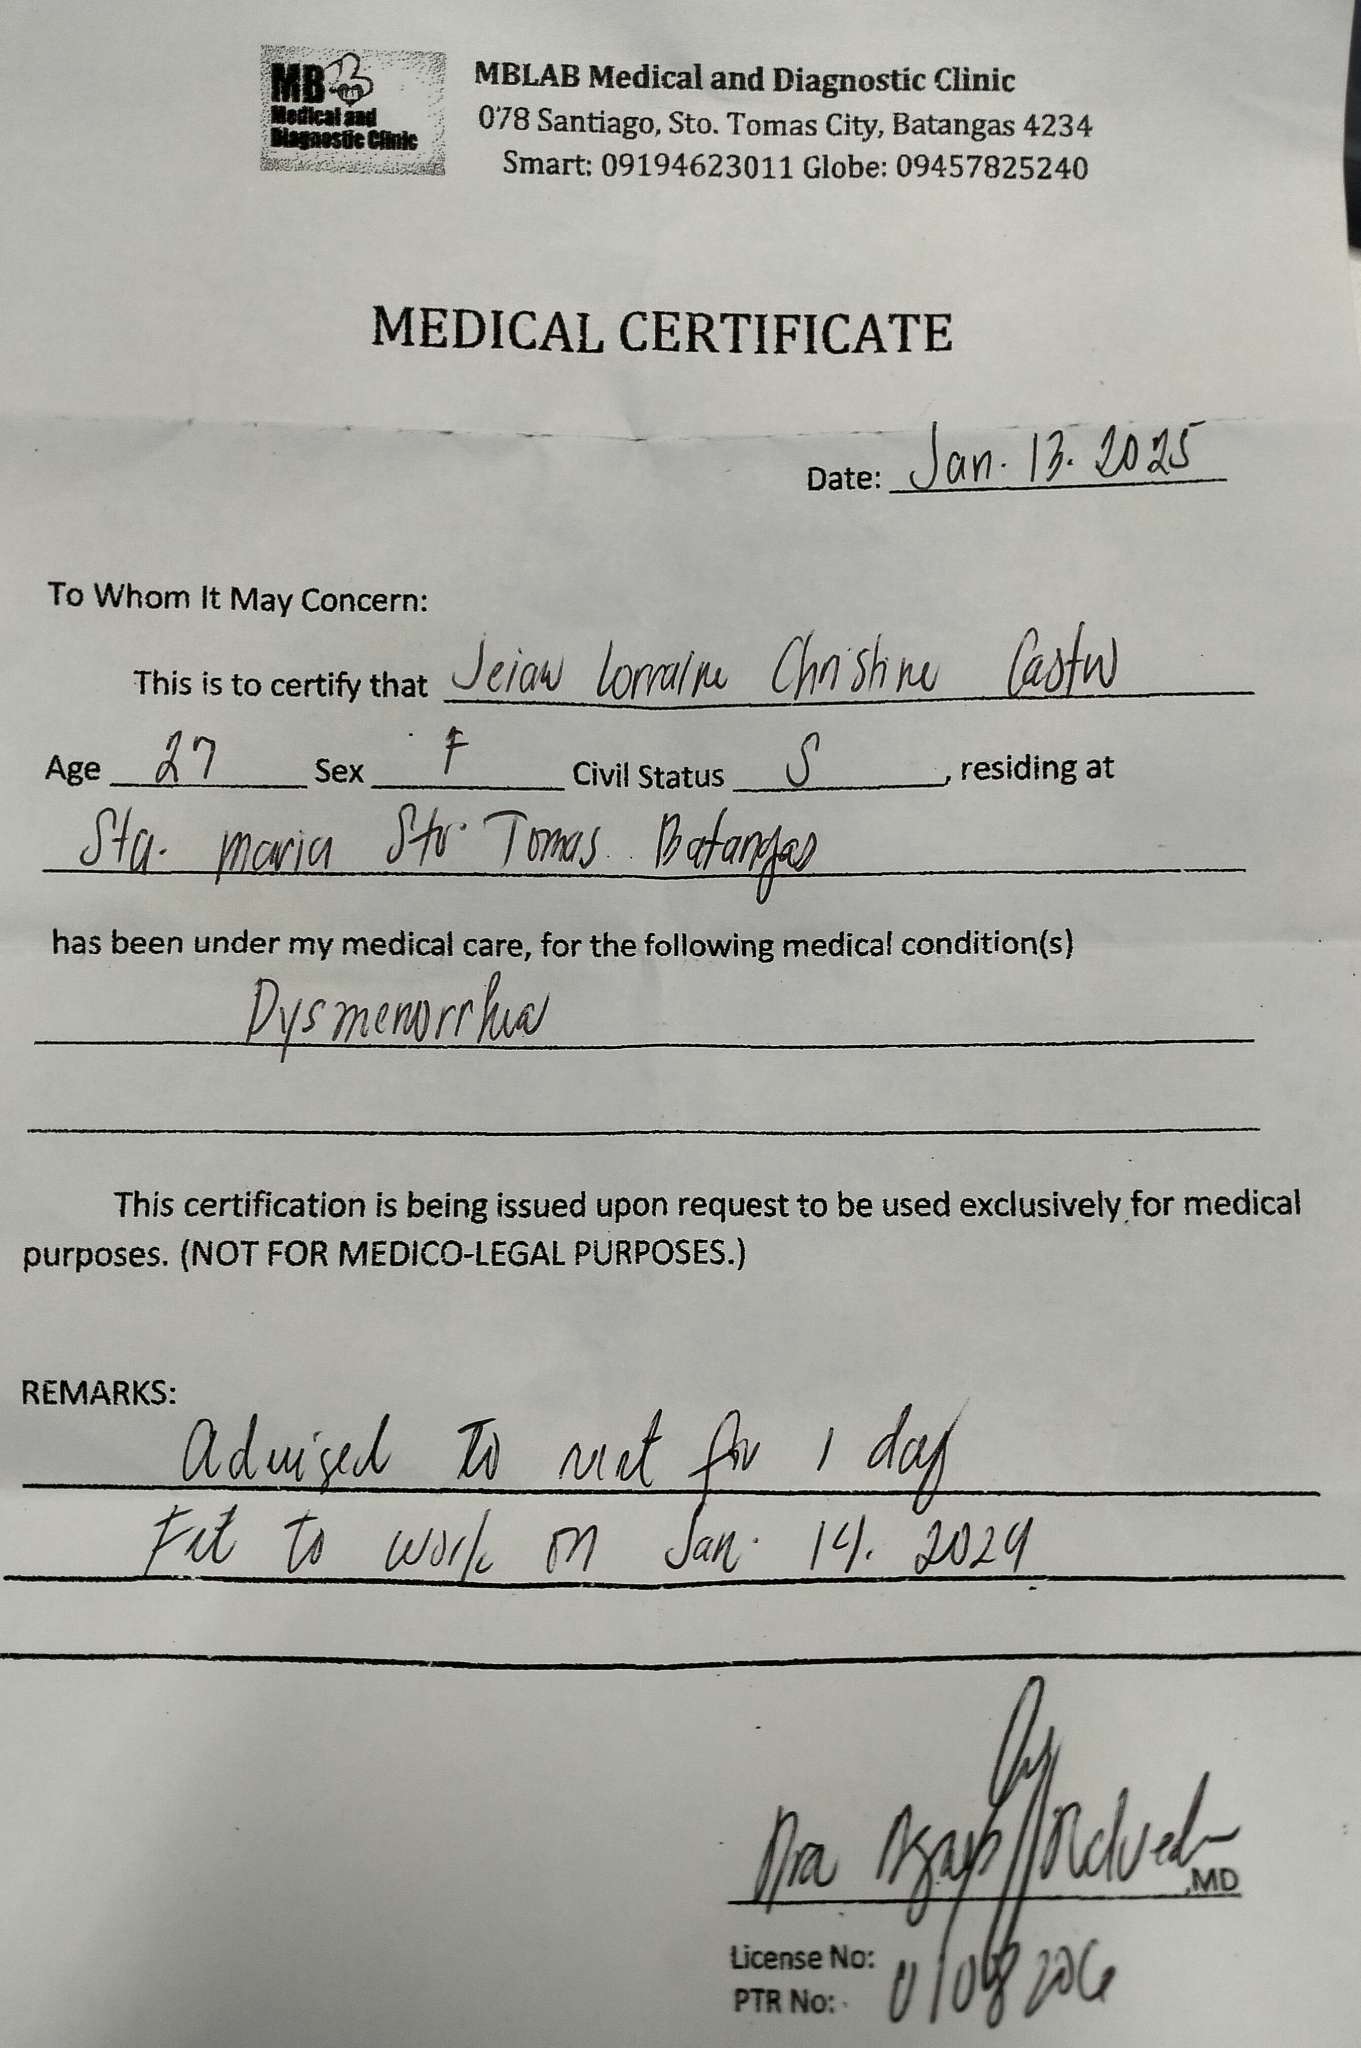 MB
Medical and
Diagnostic Clinic
MBLAB Medical and Diagnostic Clinic
078 Santiago, Sto. Tomas City, Batangas 4234
Smart: 09194623011 Globe: 09457825240
MEDICAL CERTIFICATE
Date: Jan. 13. 2025
To Whom It May Concern:
This is to certify that Lorraine Christine Castro
Age 27 Sex F Civil Status S, residing at
Sta. maria Sto. Tomas. Batangas
has been under my medical care, for the following medical condition(s)
Dysmenorrhea
This certification is being issued upon request to be used exclusively for medical
purposes. (NOT FOR MEDICO-LEGAL PURPOSES.)
REMARKS:
Advised to rest for 1 day
Fit to work on Jan. 14. 2024
Dra ,MD
License No:
PTR No: